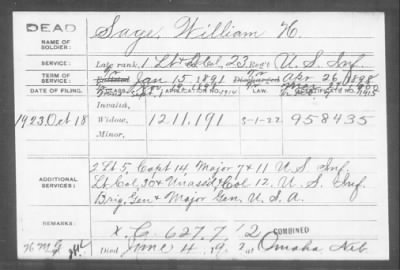 DEAD
NAME OF SOLDIER: Sage, William H.
SERVICE: Late rank, 1 Lt & Col, 23 Reg't U. S. Inf.
TERM OF SERVICE: Enlisted Jan 15, 1891 Discharged Apr 26, 1898
DATE OF FILING. CLASS. APPLICATION NO. LAW. CERTIFICATE NO.
Invalid,
1923 Oct 18 Widow, 1211,191 5-1-22. 958435
Minor,
ADDITIONAL SERVICES: 2 Lt 5, Capt 14, Major 7 & 11 U. S. Inf.
Lt Col, 30 & Unassd & Col 12. U. S. Inf.
Brig. Gen & Major Gen, U. S. A.
REMARKS: X C. 627,712 COMBINED
Died June 4, 192 at Omaha Neb.